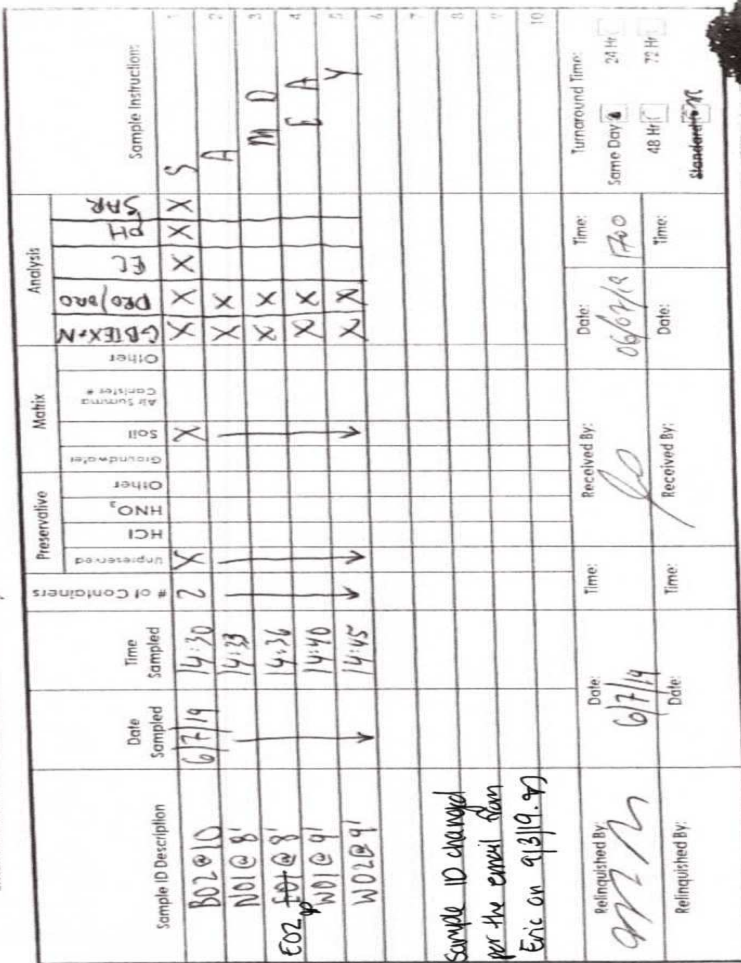 Sample ID Description
Date Sampled
Time Sampled
# of Containers
Preservative
Unpreserved
HCl
HNO3
Other
Matrix
Groundwater
Soil
Air Summa Canister #
Other
Analysis
GBTEX+N
DRO/ORO
EC
pH
SAR
Sample Instructions
BO2@10 6/7/19 14:30 2 X X X X X X X S 1
NO1@8' 14:33 X X A 2
EO2 EO1@8' 14:36 X X M D 3
WO1@9' 14:40 X X E A 4
WO2@9' 14:45 X X Y 5
6
7
Sample ID changed 8
per the email from 9
Eric on 9/3/19. 10
Relinquished By:
Date: 6/7/19
Time:
Received By:
Date: 06/07/19
Time: 1700
Turnaround Time:
Same Day
24 Hr
48 Hr
72 Hr
Standard
Relinquished By:
Date:
Time:
Received By:
Date:
Time: